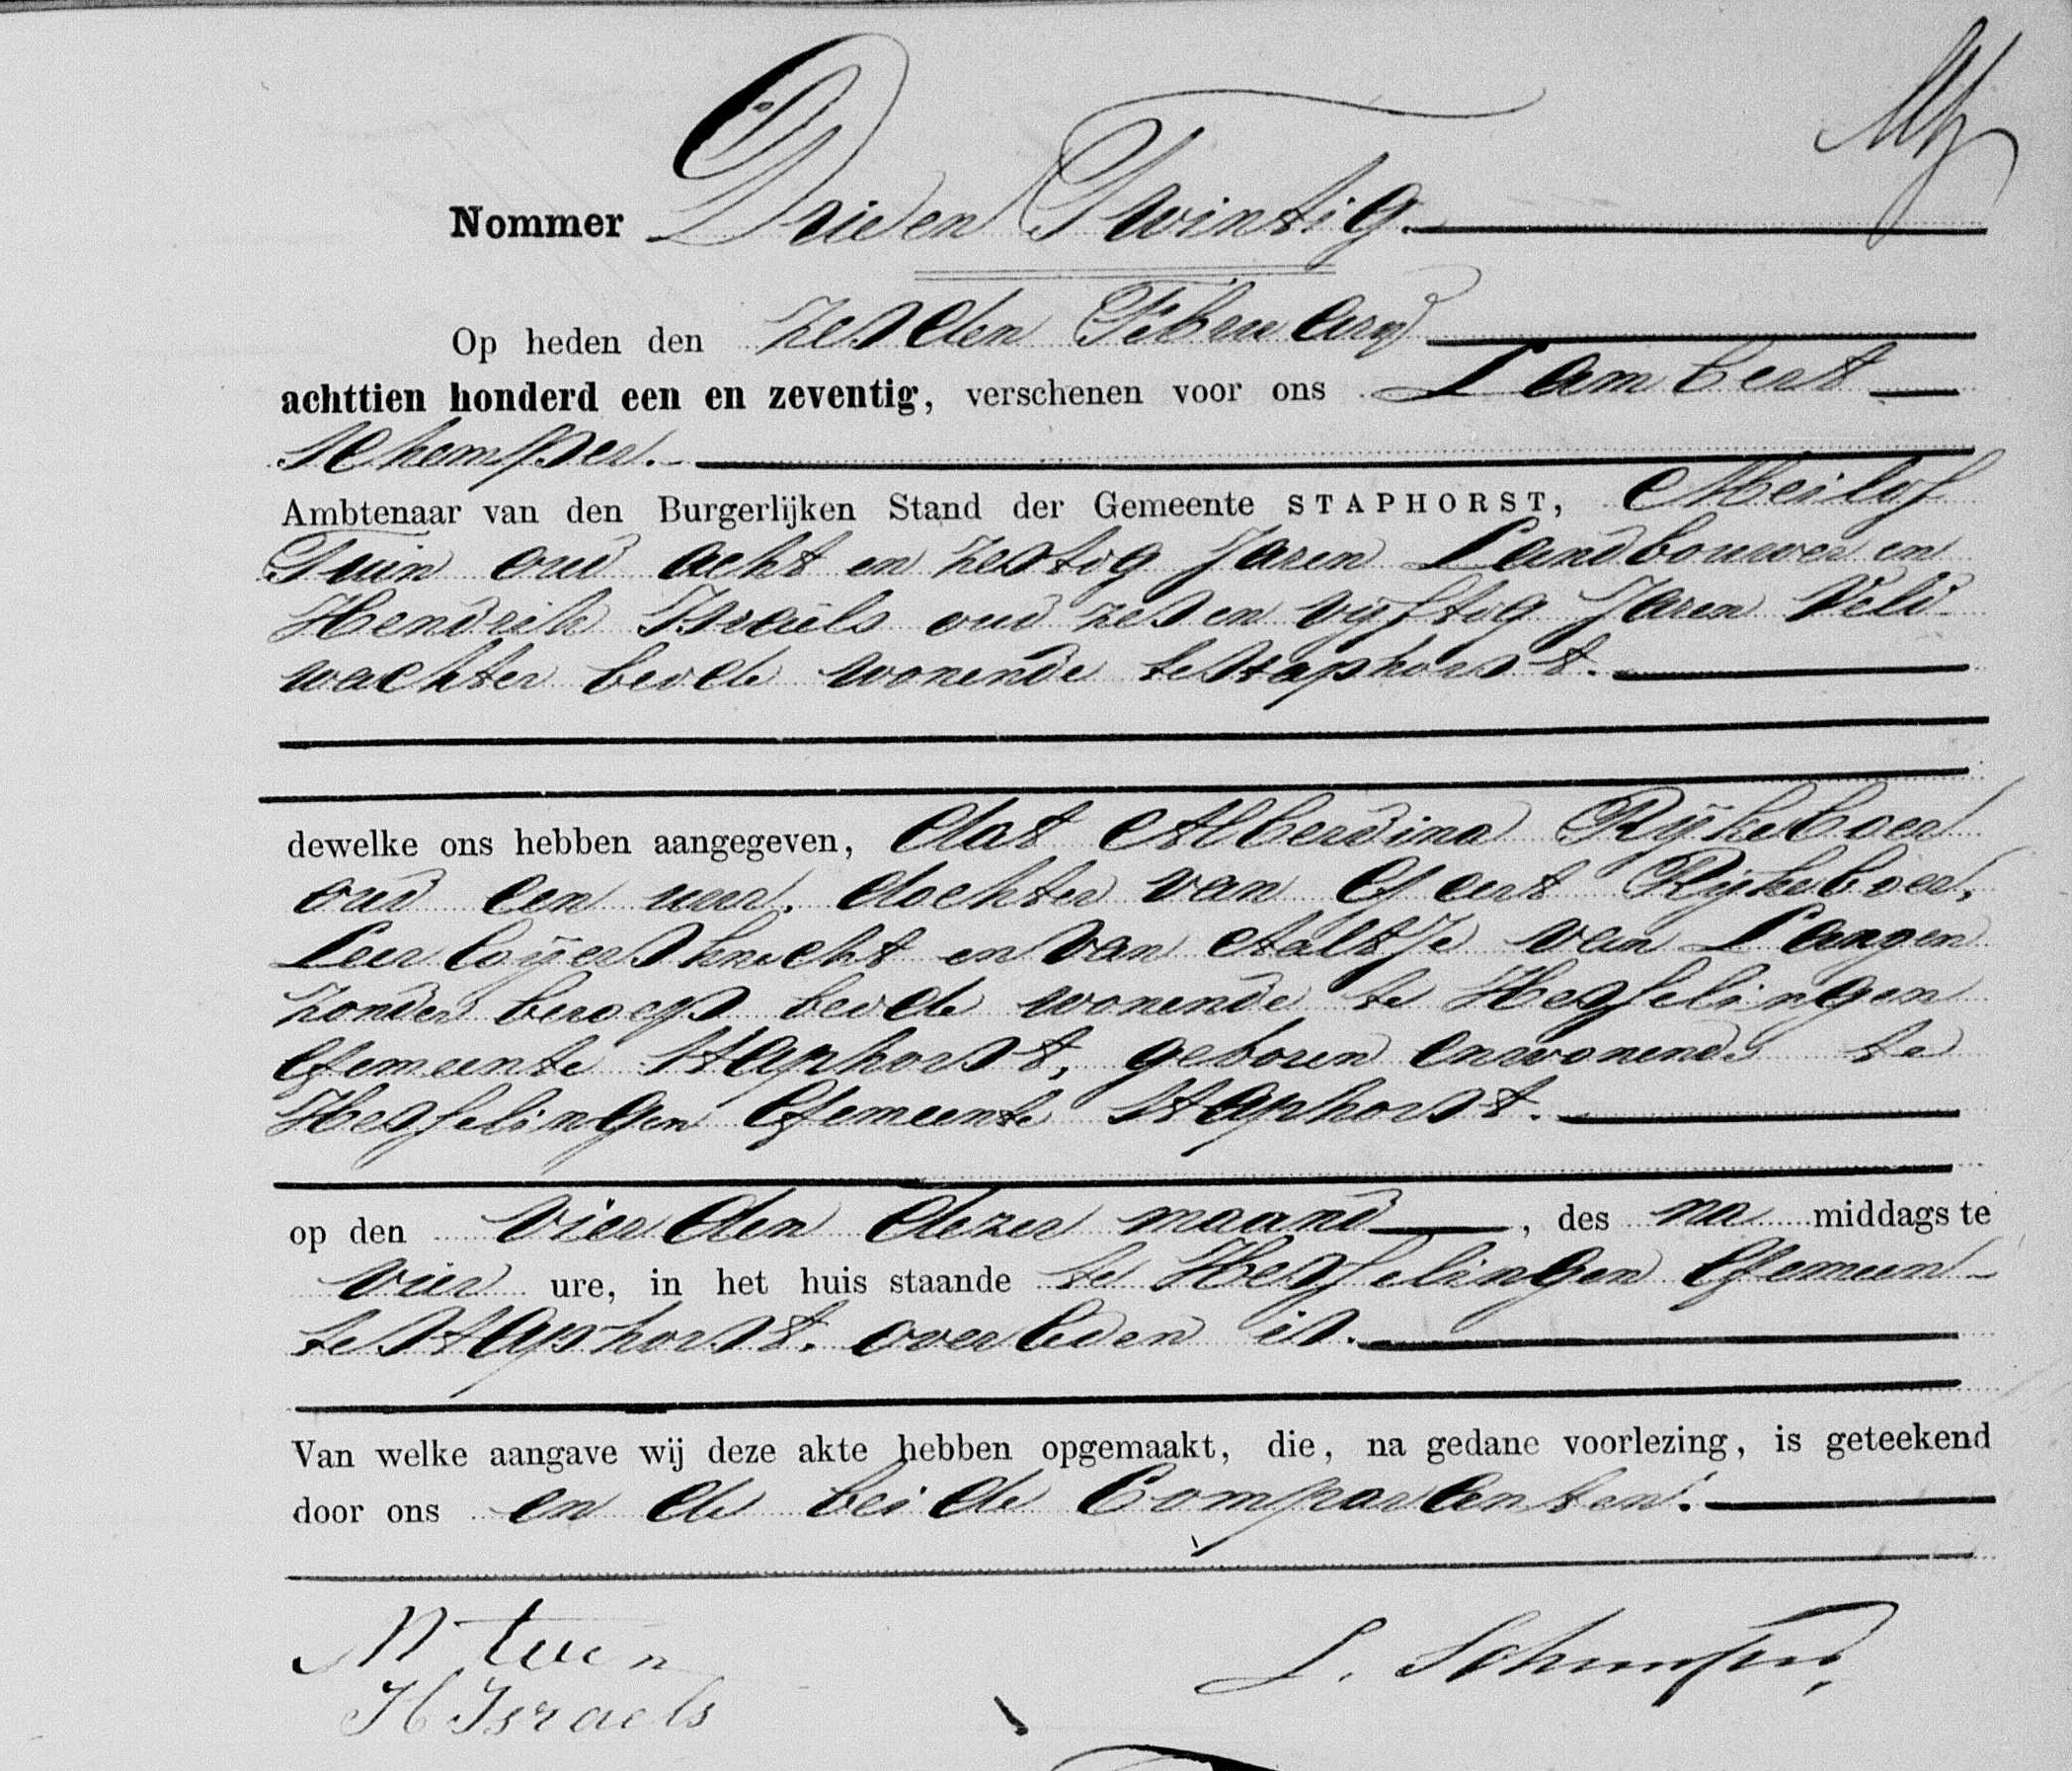 Nommer Drieen Twintig.
Op heden den zesden Februarij
achttien honderd een en zeventig, verschenen voor ons Lambert
Schemper.
Ambtenaar van den Burgerlijken Stand der Gemeente STAPHORST, Meilof
Tuin oud acht en zestig Jaren Landbouwer en
Hendrik Israëls oud zes en vijftig Jaren Veld
wachter beide wonende te Staphorst.
dewelke ons hebben aangegeven, dat Alberdina Rijkeboer
oud een uur. dochter van Geert Rijkeboer,
Leerloijersknecht en van Aaltje van Langen
zonder beroep beide wonende te Hesselingen
Gemeente Staphorst, geboren en wonende te
Hesselingen Gemeente Staphorst.
op den vierden dezer maand, des na middags te
vier ure, in het huis staande te Hesselingen Gemeen-
te Staphorst. overleden is.
Van welke aangave wij deze akte hebben opgemaakt, die, na gedane voorlezing, is geteekend
door ons en de beide Comparanten.
M tuin
L. Schemper,
H Israels